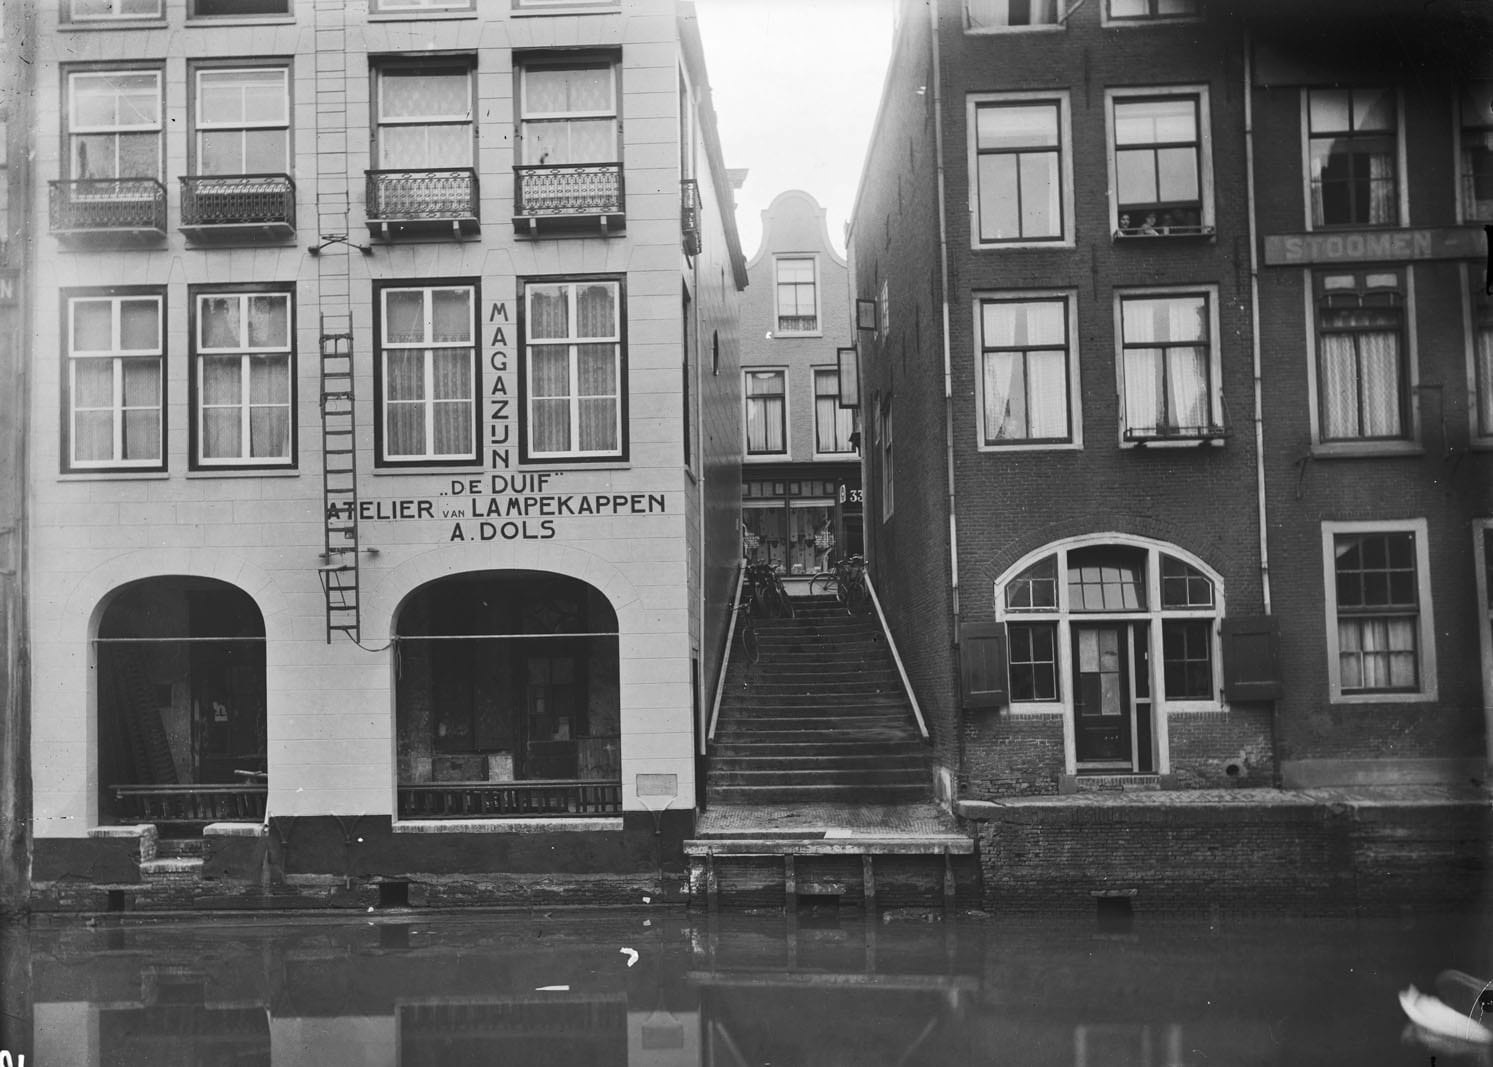 MAGAZIJN
„DE DUIF”
ATELIER VAN LAMPEKAPPEN
A. DOLS
33
STOOMEN -
N